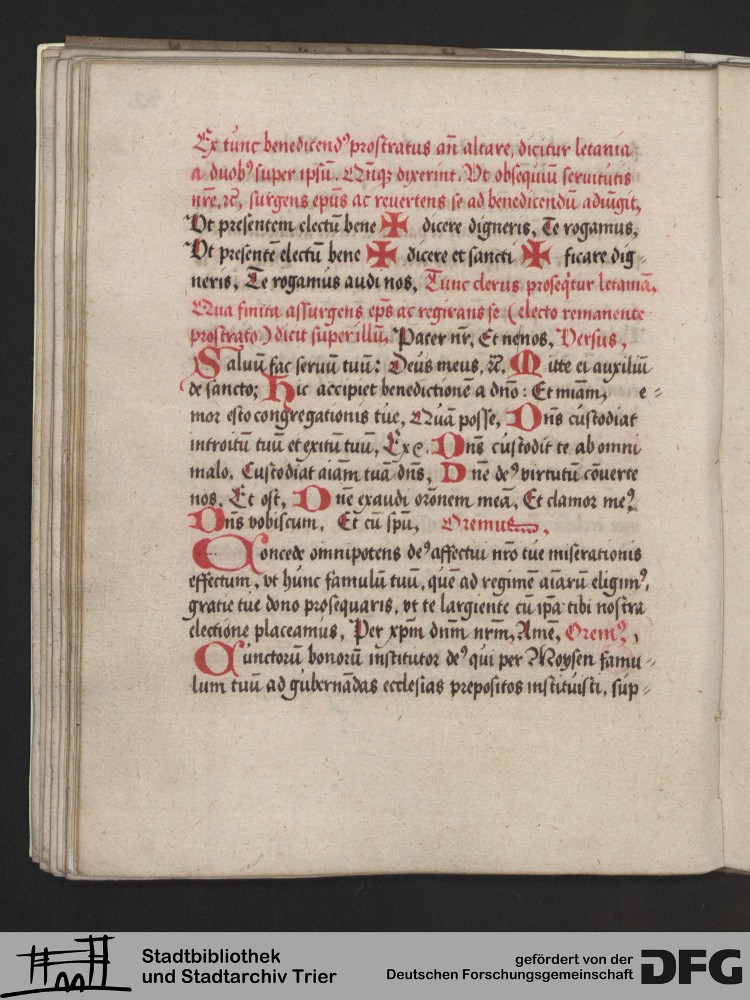 Ex tunc benedicend⁹ prostratus an̄ altare, dicitur letania
a duob⁹ super ipsū. Cūnqꝫ dixerint. Vt obsequiū seruitutis
nr̄e, ꝛc̄, surgens ep̄us ac reuertens se ad benedicendū adiūgit,
Vt presentem electū bene ✠ dicere digneris, Te rogamus,
Vt presentē electū bene ✠ dicere et sancti ✠ ficare dig⸗
neris, Te rogamus audi nos, Tunc clerus proseq̇tur letaniā,
Qua finita assurgens ep̄s ac regirans se (electo remanente
prostrato) dicit super illū, Pater nr̄, Et ne nos, Versus,
Saluū fac seruū tuū: Deus meus, ꝛc̄. Mitte ei auxiliū
de sancto; Hic accipiet benedictionē a dn̄o: Et miam, e⸗
mor esto congregationis tue, Quā posse, Dn̄s custodiat
introitū tuū et exitū tuū, Ex Dn̄s custodit te ab omni
malo. Custodiat aīam tuā dn̄s, Dn̄e de⁹ virtutū cōuerte
nos, Et ost, Dn̄e exaudi orōnem meā, Et clamor me⁹
Dn̄s vobiscum, Et cū spū, Oremus,
Concede omnipotens de⁹ affectui nr̄o tue miserationis
effectum, vt hunc famulū tuū, quē ad regimē aīarū eligim⁹,
gratie tue dono prosequaris, vt te largiente cū ip̄a tibi nostra
electione placeamus, Per xp̄m dn̄m nr̄m, Amē, Orem⁹,
Cunctorū bonorū institutor de⁹ qui per Moysen famu⸗
lum tuū ad gubernādas ecclesias prepositos instituisti, sup⸗
Stadtbibliothek
und Stadtarchiv Trier
gefördert von der
Deutschen Forschungsgemeinschaft
DFG